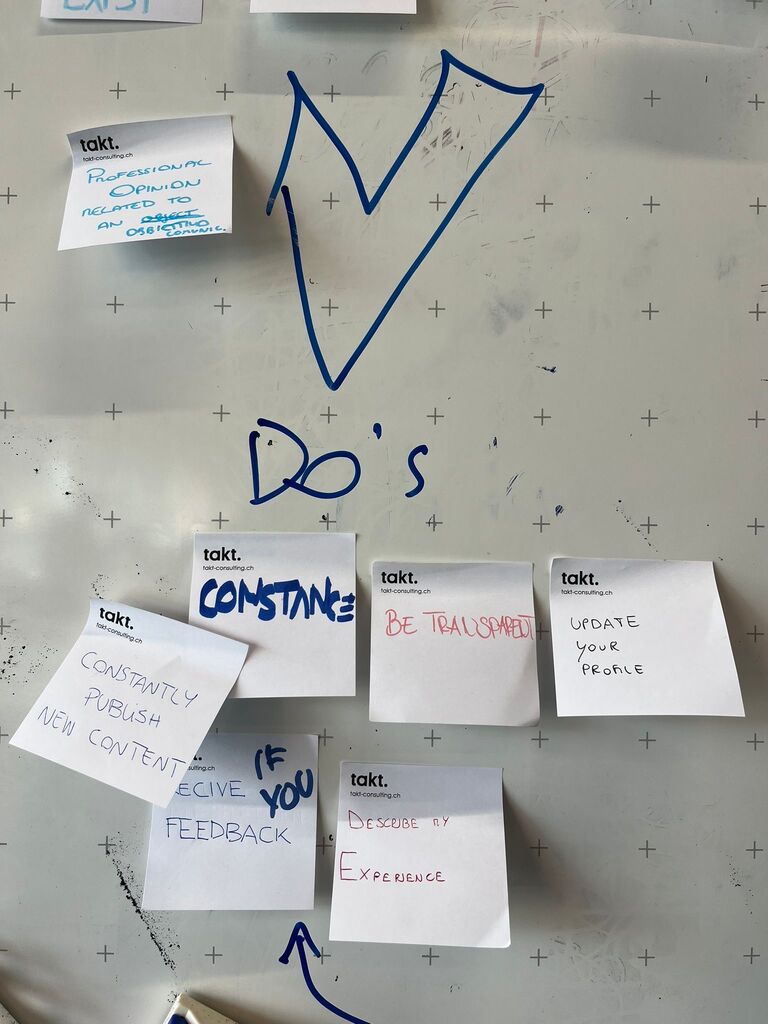 EXIST
takt.
takt-consulting.ch
PROFESSIONAL
OPINION
RELATED TO
AN OBJECT
OBBIETTIVO
COMUNIC.
Do's
takt.
takt-consulting.ch
CONSTANCE
takt.
takt-consulting.ch
BE TRANSPARENT
takt.
takt-consulting.ch
UPDATE
YOUR
PROFILE
takt.
takt-consulting.ch
CONSTANTLY
PUBLISH
NEW CONTENT
IF
YOU
ECIVE
FEEDBACK
takt.
takt-consulting.ch
DESCRIBE MY
EXPERIENCE